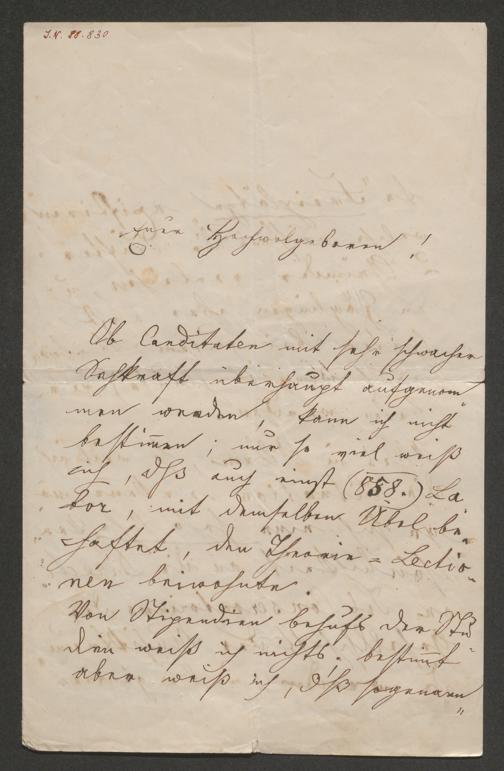 I.N. 88.830
Euer Hochwolgeboren!
Ob Canditaten mit sehr schwacher
Sehkraft überhaupt aufgenom„
men werden, kann ich nicht
bestimen; nur so viel weiß
ich, dß auch einst (858.) La
bor, mit demselben Übel be„
haftet, den Theorie=Lectio„
nen beiwohnte.
Von Stipendien behufs der Stu„
dien weiß ich nichts; bestimt
aber weiß ich, dß sogenann
„